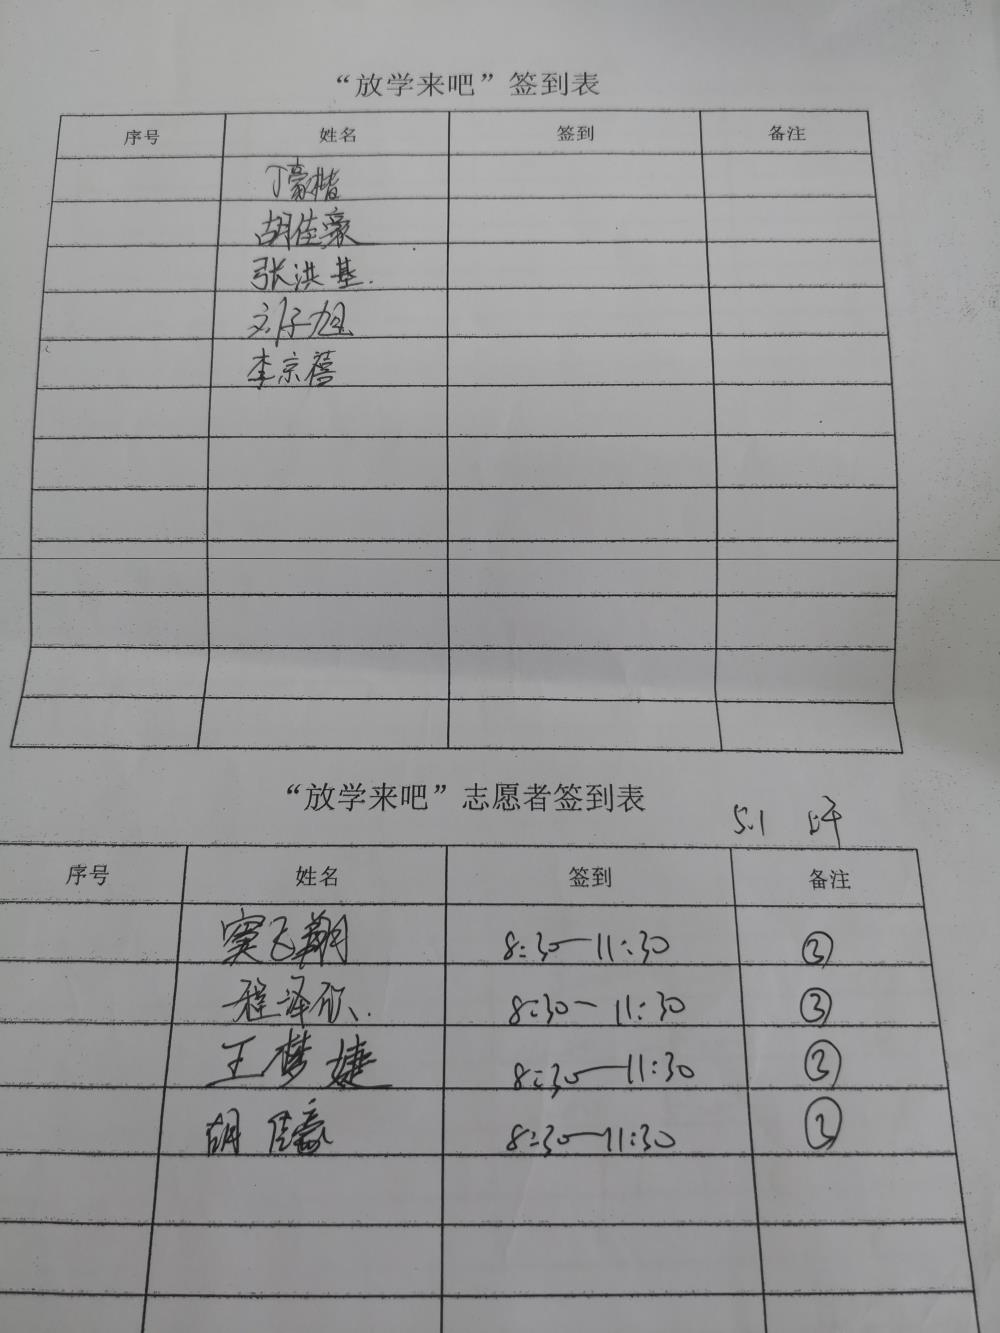 “放学来吧”签到表
序号 姓名 签到 备注
丁豪楷
胡佳豪
张洪基.
刘子旭
李宗蓓
“放学来吧”志愿者签到表
5.1 上午
序号 姓名 签到 备注
窦飞翔 8:30—11:30 ③
程泽欣. 8:30—11:30 ③
王梦婕 8:30—11:30 ③
胡佳豪 8:30—11:30 ③